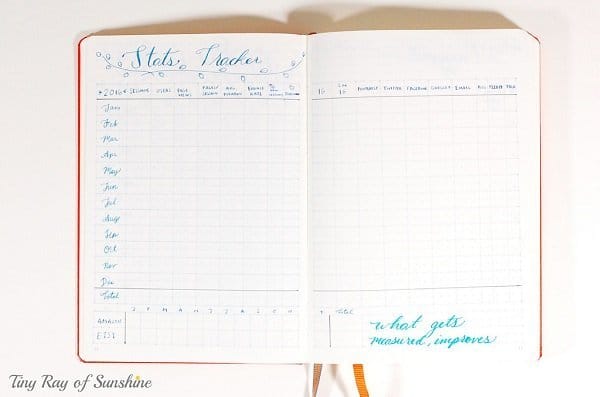 Stats Tracker
*2016* SESSIONS USERS PAGE VIEWS PAGES/SESSION AVG DURATION BOUNCE RATE
IG PINTEREST TWITTER FACEBOOK EMAIL
Jan
Feb
Mar
Apr
May
Jun
Jul
Aug
Sep
Oct
Nov
Dec
Total
J F M A M J J A S O N D Total
AMAZON
ETSY
what gets
measured, improves
Tiny Ray of Sunshine